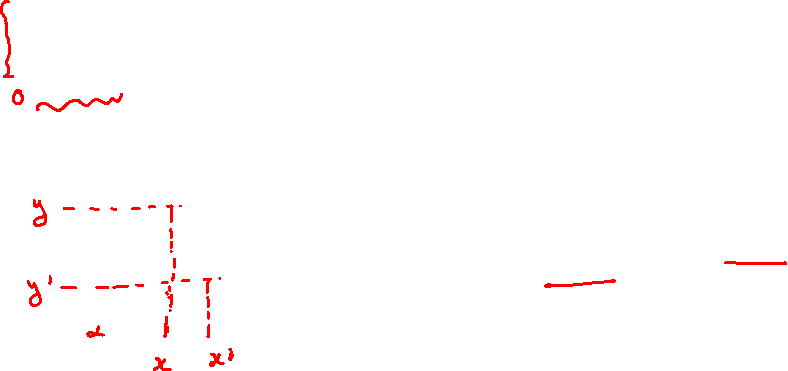 0
y
y'
α
x x'